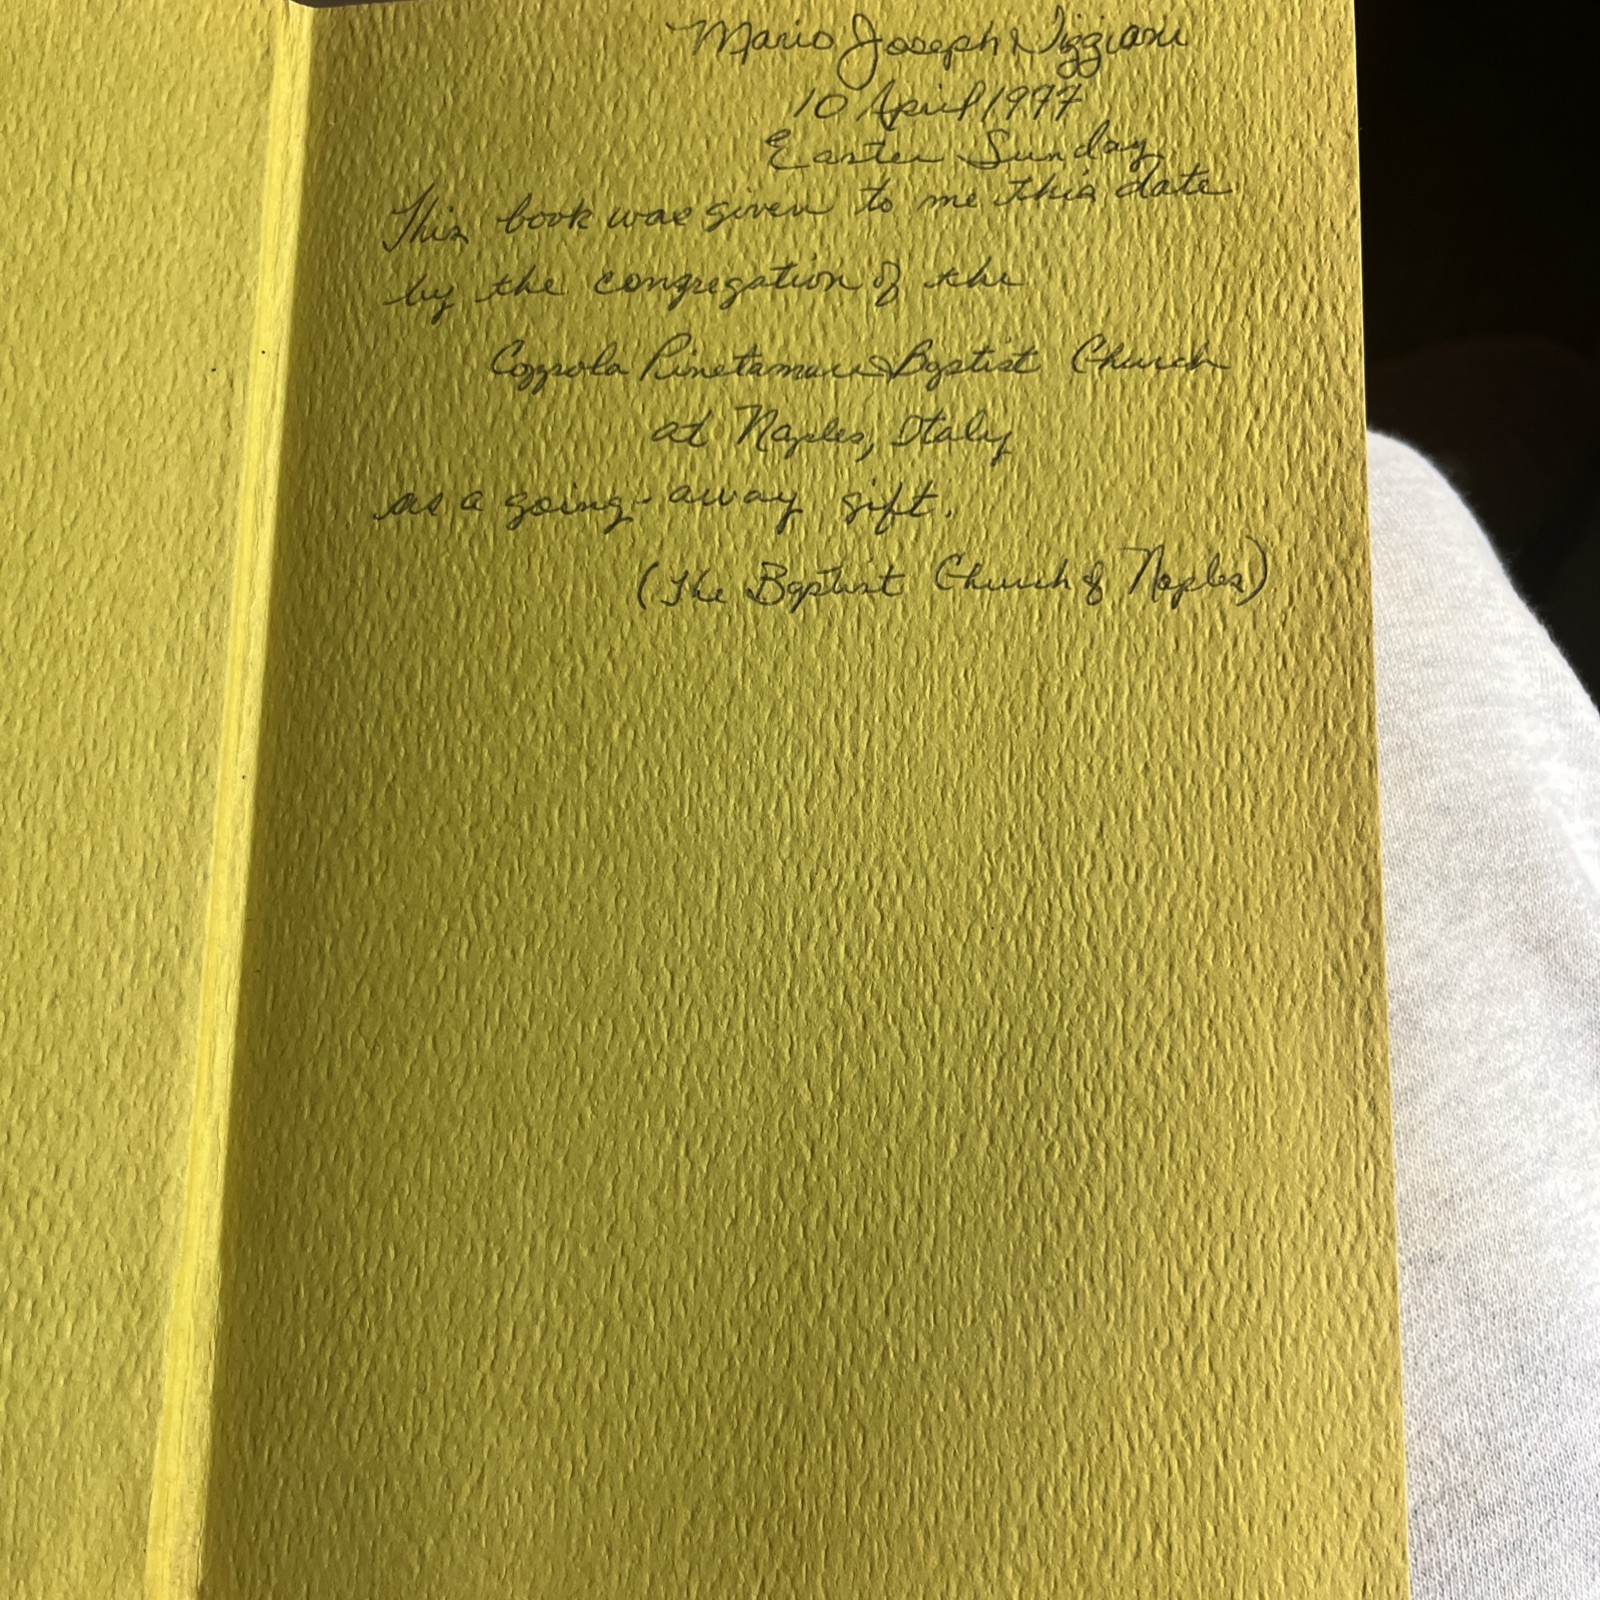 Mario Joseph Viggiani
10 April 1977
Easter Sunday
This book was given to me this date
by the congregation of the
Coppola Pinetamare Baptist Church
at Naples, Italy
as a going-away gift.
(The Baptist Church of Naples)